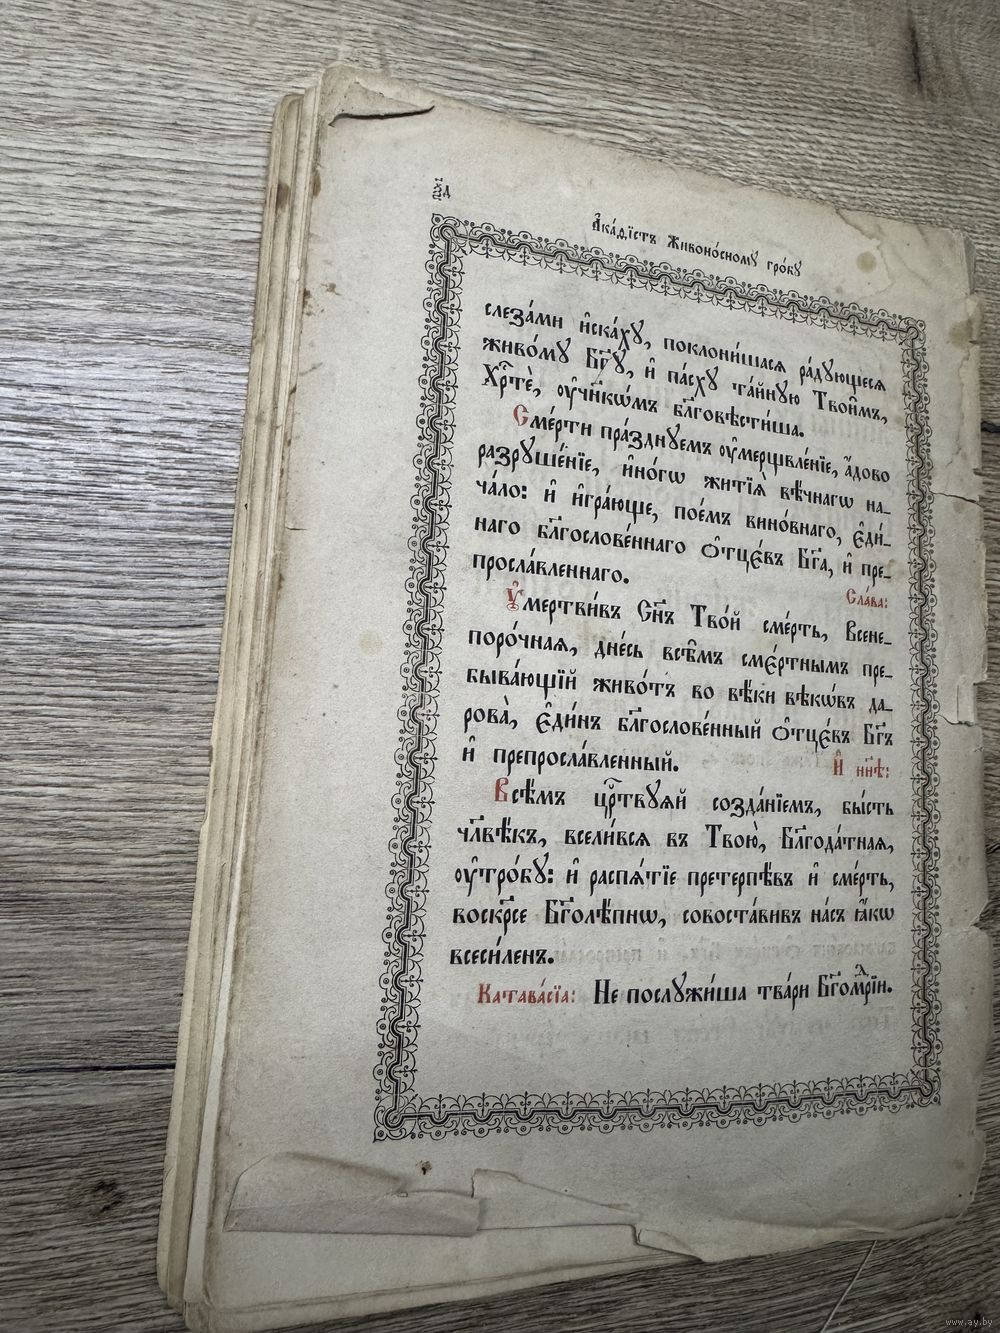 А҆ка́ѳїстъ Живоно́сному гро́бу
слеза́ми и҆ска́ху, поклони́шася ра́дующїеся
живо́му Бг҃у, и҆ па́сху та́йную Твои̑мъ,
Хрⷭ҇тѐ, оу҆чн҃кѡ́мъ бл҃говѣсти́ша.
Сме́рти пра́зднуемъ оу҆мерщвле́нїе, а҆́дово
разруше́нїе, и҆но́гѡ житїѧ̀ вѣ́чнагѡ на_
ча́ло: и҆ и҆гра́юще, пое́мъ вино́внаго, є҆ди́_
наго бл҃гослове́ннаго ѻ҆тцє́въ Бг҃а, и҆ пре_
просла́вленнаго.
Сла́ва:
Оу҆мертви́въ Сн҃ъ Тво́й сме́рть, Всене_
поро́чная, дне́сь всѣ̑мъ смє́ртнымъ пре_
быва́ющїй живо́тъ во вѣ́ки вѣкѡ́въ да_
рова̀, є҆ди́нъ бл҃гослове́нный ѻ҆тцє́въ Бг҃ъ
и҆ препросла́вленный.
И҆ нн҃ѣ:
Всѣ́мъ црⷭ҇твуяй созда́нїемъ, бы́сть
чл҃вѣ́къ, всели́вся въ Твою̀, Бл҃года́тная,
оу҆тро́бу: и҆ распя́тїе претерпѣ́въ и҆ сме́рть,
воскрⷭ҇се Бг҃олѣ́пнѡ, совоста́вивъ на́съ ꙗ҆́кѡ
всеси́ленъ.
Катава́сїа: Не послужи́ша тва́ри Бг҃омⷣрїи.
www.ay.by